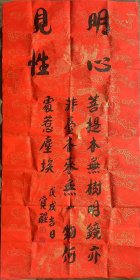 明心
見性
菩提本無樹明鏡亦
非臺本来無一物何
處惹塵埃
戊戌吉日